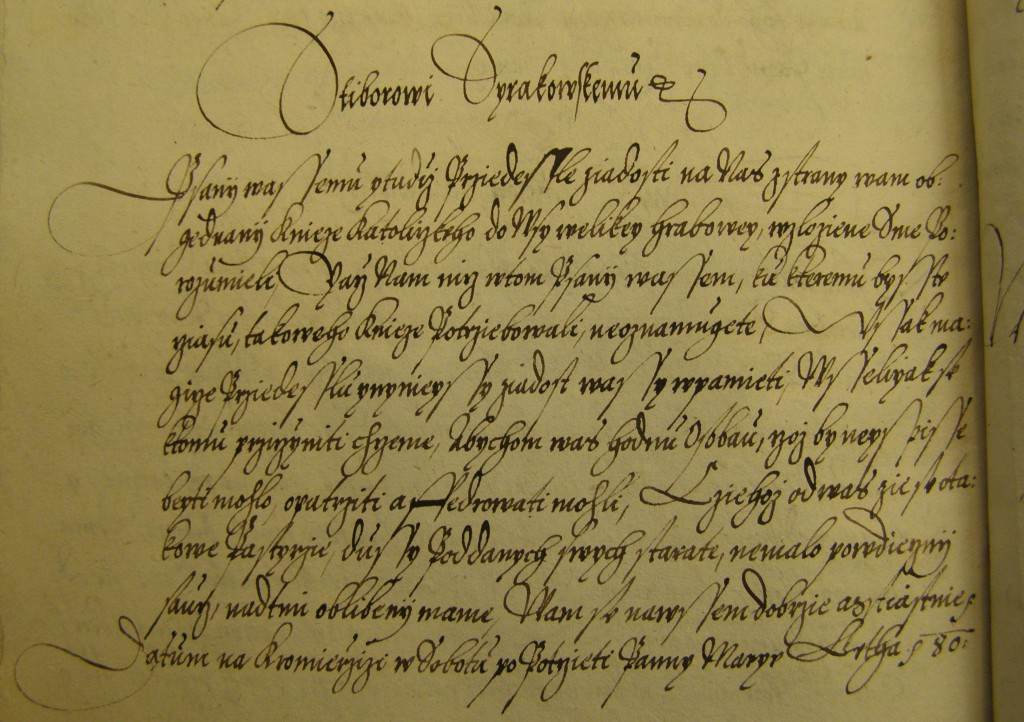 Stiborowi Syrakowskemu ꝛc
Psany wassemu ytudiz Przedessle ziadosti na Nas zstrany wam ob:
gednany Knieze Katolitzkeho do Wsy welikey Hrabowey, wzloziene Sme Po:
rozumieli, Nay Nam nicz wtom Psany wassem, ku kteremu bysste
cziasu, takoweho Knieze Potrziebowali, neoznamugete, Wssak ma:
gicze Przedesslu ynynieyssy ziadost wassy wpamieti, Wsselijak se
ktomu przicziniti chczeme, Abychom was hodnu Osobau, czoz by neyspissse
beyti mohlo, opatrziti a ffedrowati mohli, Cziehoz od was zie se o ta:
kowe Pastyrzie, dussy Poddanych swych starate, nemalo powdieczny
saucz, nadtim oblibeny mame, Wam se nawssem dobrzie asstiastnie
Datum na Kromierzizi w Sobotu po Poczieti Panny Marye Letha 80: